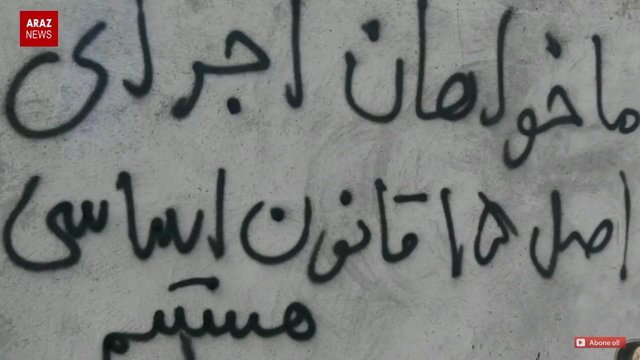 ARAZ
NEWS
ما خواهان اجرای
اصل ۱۵ قانون اساسی
هستیم
Abone ol!